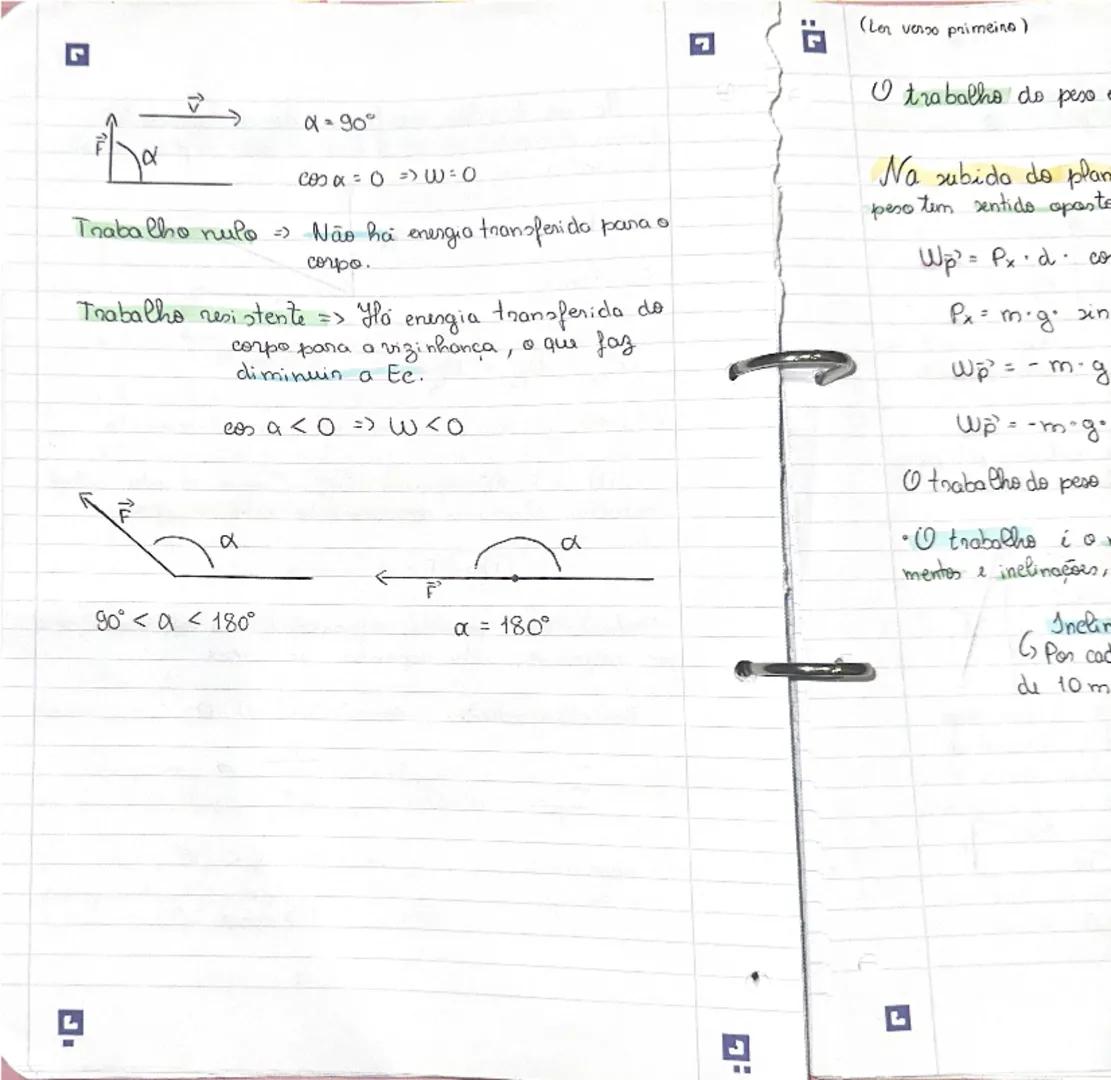 v
α = 90°
F
α
cos α = 0 => W = 0
Trabalho nulo => Não há energia transferida para o
corpo.
Trabalho resistente => Há energia transferida do
corpo para a vizinhança, o que faz
diminuir a Ec.
cos α < 0 => W < 0
F
α
α
F
90° < α < 180°
α = 180°
(Ler verso primeiro)
O trabalho do peso
Na subida do plan
peso tem sentido oposto
Wp = Px · d · co
Px = m · g · sin
Wp = - m · g
Wp = - m · g ·
O trabalho do peso
• O trabalho é o
mentos e inclinações,
Inclin
↳ Por cad
de 10 m